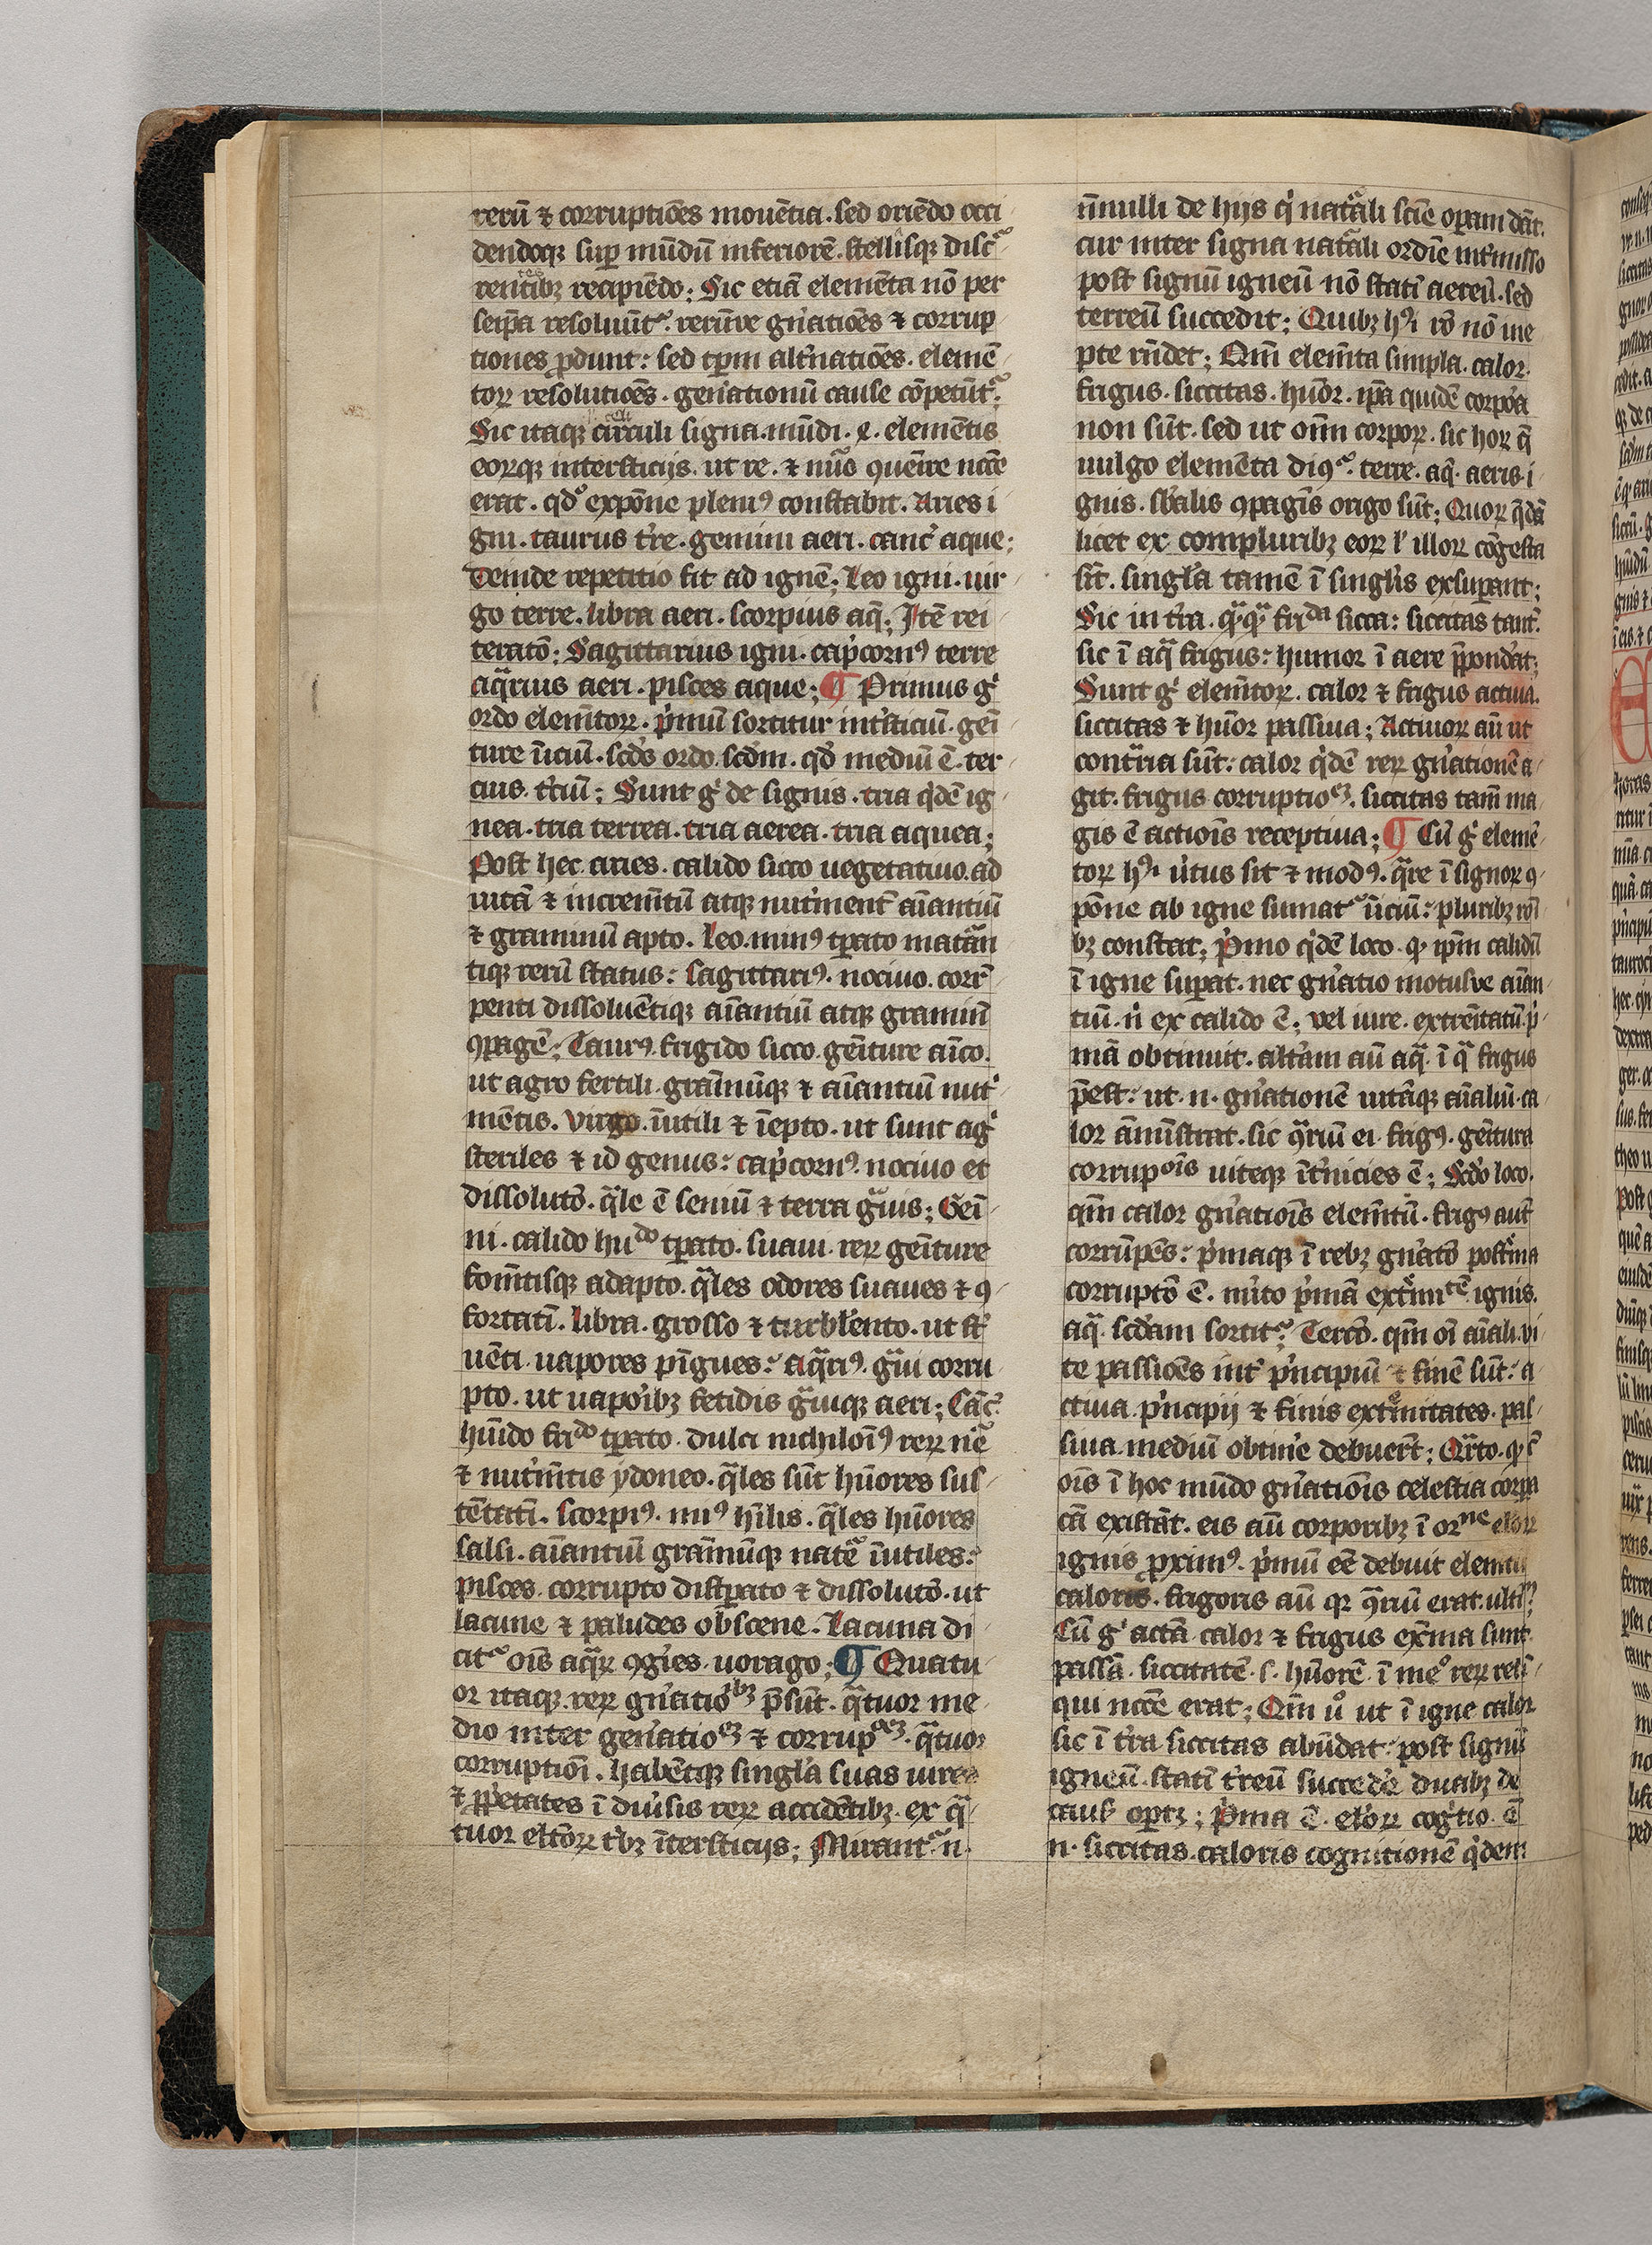 rerū ⁊ corruptiōes mouētia. sed oriēdo occi
dendoqꝫ suꝑ mūdū inferiorē. stellisqꝫ disc
rentibꝫ recipiēdo; Sic etiā elemēta nō per
seip̄a resoluūt͛. rerūve gn̄atiōes ⁊ corrup
tiones ꝓdunt: sed tp̄m alt͛natiōes. elemē
toꝝ resolutiōes. gen͛ationū cause cōpetūt͛;
Sic itaqꝫ circuli signa. mūdi. elemētis
eorqꝫ intersticijs. ut re. ⁊ nūo ꝯuēire nccē
erat. qd͛ expōne pleniꝰ constabit. Aries i
gni. taurus t͛re. gemini aeri. canc͛ aque;
Deinde repetitio fit ad ignē; Leo igni. uir
go terre. libra aeri. scorpius aq̄; Itē rei
teratō; Sagittarius igni. cap͛cornꝰ terre
aq̄rius aeri. pisces aque; ¶ Primus g͛
ordo elem̄toꝝ. p͛mū sortitur int͛sticiū. geī
ture īiciū. scd͛s ordo. scdm. qd͛ mediū ē. ter
cius. t͛ciū; Sunt g͛ de signis. tria q͛dē ig
nea. tria terrea. tria aerea. tria aquea;
Post hec aries. calido sicco uegetatiuo. ad
uitā ⁊ increm̄tū atqꝫ nut͛ment͛ aīantiū
⁊ graminū apto. Leo. minꝰ tꝑato
tiqꝫ rerū status: sagittariꝰ. nociuo. corr̄
penti dissoluētiqꝫ aīantiū atqꝫ graminū
ꝯpagē; Taurꝰ frigido sicco. genīture aīco.
ut agro fertili. gramīnūqꝫ ⁊ aīantiū nut͛
mētis. Virgo. īutili ⁊ īepto. ut sunt ag͛
steriles ⁊ id genus: cap͛cornꝰ. nociuo et
dissolutō. q̄le ē seniū ⁊ terra g͛uis; Geī
ni. calido hu͛do tꝑato. suaui. reꝝ genīture
fom̄tisqꝫ adapto. q̄les odores suaues ⁊ ꝯ
fortatī. Libra. grosso ⁊ turbl͛ento. ut st͛
uēti. uapores pīgues: aq̄riꝰ. g͛ui corru
pto. ut uapo͛ibꝫ fetidis g͛uiqꝫ aeri; Cāc͛
hūido fri͛do tꝑato. dulci nichiloīꝰ reꝝ
⁊ nut͛m̄tis ydoneo. q̄les sūt hūores sus
tētatī. Scorpiꝰ. miꝰ h͛ilis. q̄les hūores
salsi. aīantiū gramīnūqꝫ natē īutiles:
pisces. corrupto distꝑato ⁊ dissolutō. ut
lacune ⁊ paludes obscene. Lacuna di
cit͛ oīs aq̄ꝝ ꝯg͛ies. uorago; ¶ Quatu
or itaqꝫ. reꝝ gn̄atiōibꝫ p̄sūt. q̄tuor me
dio inter gen͛atioēs ⁊ corrupoēs. q̄tuor
corruptioī. habētqꝫ singl͛a suas uires
⁊ ꝓp͛etates ī diu͛sis reꝝ accidētibꝫ. ex q̄
tuor eltōꝝ t͛bꝫ īntersticijs; Mirant͛. n.
n̄nulli de hijs q͛ nat͛ali sciē oꝑam dāt.
cur inter signa nat͛ali ordīe int͛misso
post signū igneū nō statī aereū. sed
terreū succedit; Quibꝫ rō nō ine
pte rn̄det; Qm̄ elem̄ta simpla. calor.
frigus. siccitas. hūor. ip̄a quidē corpo͛a
non sūt. sed ut oīm corpoꝝ. sic hoꝝ q̄
uulgo elemēta dicꝰ. terre. aq̄. aeris. i
gnis. sb͛alis ꝯpagīs origo sūt; Quoꝝ q̄dā
licet ex compluribꝫ eoꝝ l͛ illoꝝ cōgesta
sīt. singl͛a tamē ī singl͛is exsuꝑant;
Sic in t͛ra. q̄q̄ fri͛da sicca: siccitas tant͛.
sic ī aq̄ frigus: humor ī aere p̄pond͛at;
Sunt g͛ elem̄toꝝ. calor ⁊ frigus actiua.
siccitas ⁊ hūor passiua; Actiuoꝝ aū ut
cont͛ria sūt: calor q͛dē reꝝ gn̄ationē a
git. frigus corruptioēꝫ. siccitas tam̄ ma
gis ē actiōis receptiua; ¶ Cū g͛ elemē
toꝝ u͛tus sit ⁊ modꝰ. q̄re ī signoꝝ ꝯ
pōne ab igne sumat͛ īiciū: pluribꝫ
bꝫ constat; p͛mo q͛dē loco. qꝫ ip̄m calidū
ī igne suꝑat. nec gn̄atio motusve aīan
tiū. n͛ ex calido ē; vel iure. extrēitatū p͛
mā obtinuit. alt͛am aū aq̄. ī q̄ frigus
p̄est: ut. n. gn̄ationē uitāqꝫ aīaliū. ca
lor āmīstrat. sic ꝯ͛riū ei frigꝰ. genītura
corrupoīs uiteqꝫ īt͛nicies ē; Scdo loco.
qm̄ calor gn̄atiōis elem̄tū. frigꝰ aūt
corrūpēs: p͛maqꝫ ī rebꝫ gn̄atō postrema
corruptō ē. m͛ito p͛mā extremitatē ignis.
aq̄. scdam sortit͛. Tercō. qm̄ oī aīali. vi
te passiōes int͛ p͛ncipiū ⁊ finē sūt: a
ctiua. p͛ncipij ⁊ finis extrēmitates. pas
siua. mediū obtin͛e debuer̄t; Q͛rto. qꝫ
oīs ī hoc mūdo gn̄atiōis celestia corꝑa
cā existāt. eis aū corporibꝫ ī or͛ne
ignis ꝓximꝰ. p͛mū eē debuit elemtū
caloris. frigoris aū qꝛ ꝯ͛riū erat. ulti͛m
Cū g͛ actā calor ⁊ frigus ext͛ma sunt.
passā. siccitatē. s. hūorē. ī meo reꝝ reli
qui nccē erat; Qm̄ u͛o ut ī igne calor
sic ī t͛ra siccitas abūdat: post signū
igneū. statī t͛reū succed͛e duabꝫ de
caus͛ oꝑtꝫ; p͛ma ē. el͛oꝝ cog͛tio. ē
n. siccitas. caloris cognitionē q͛dem